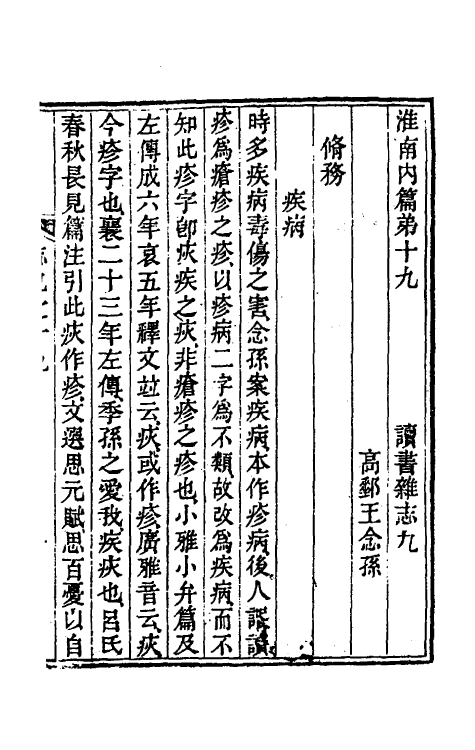 淮南内篇弟十九　　讀書雜志九
高郵王念孫
脩務
疾病
時多疾病毒傷之害念孫案疾病本作疹病後人誤讀
疹爲瘡疹之疹以疹病二字爲不類故改爲疾病而不
知此疹字卽疢疾之疢非瘡疹之疹也小雅小弁篇及
左傳成六年哀五年釋文竝云疢或作疹廣雅音云疢
今疹字也襄二十三年左傳季孫之愛我疾疢也呂氏
春秋長見篇注引此疢作疹文選思元賦思百憂以自